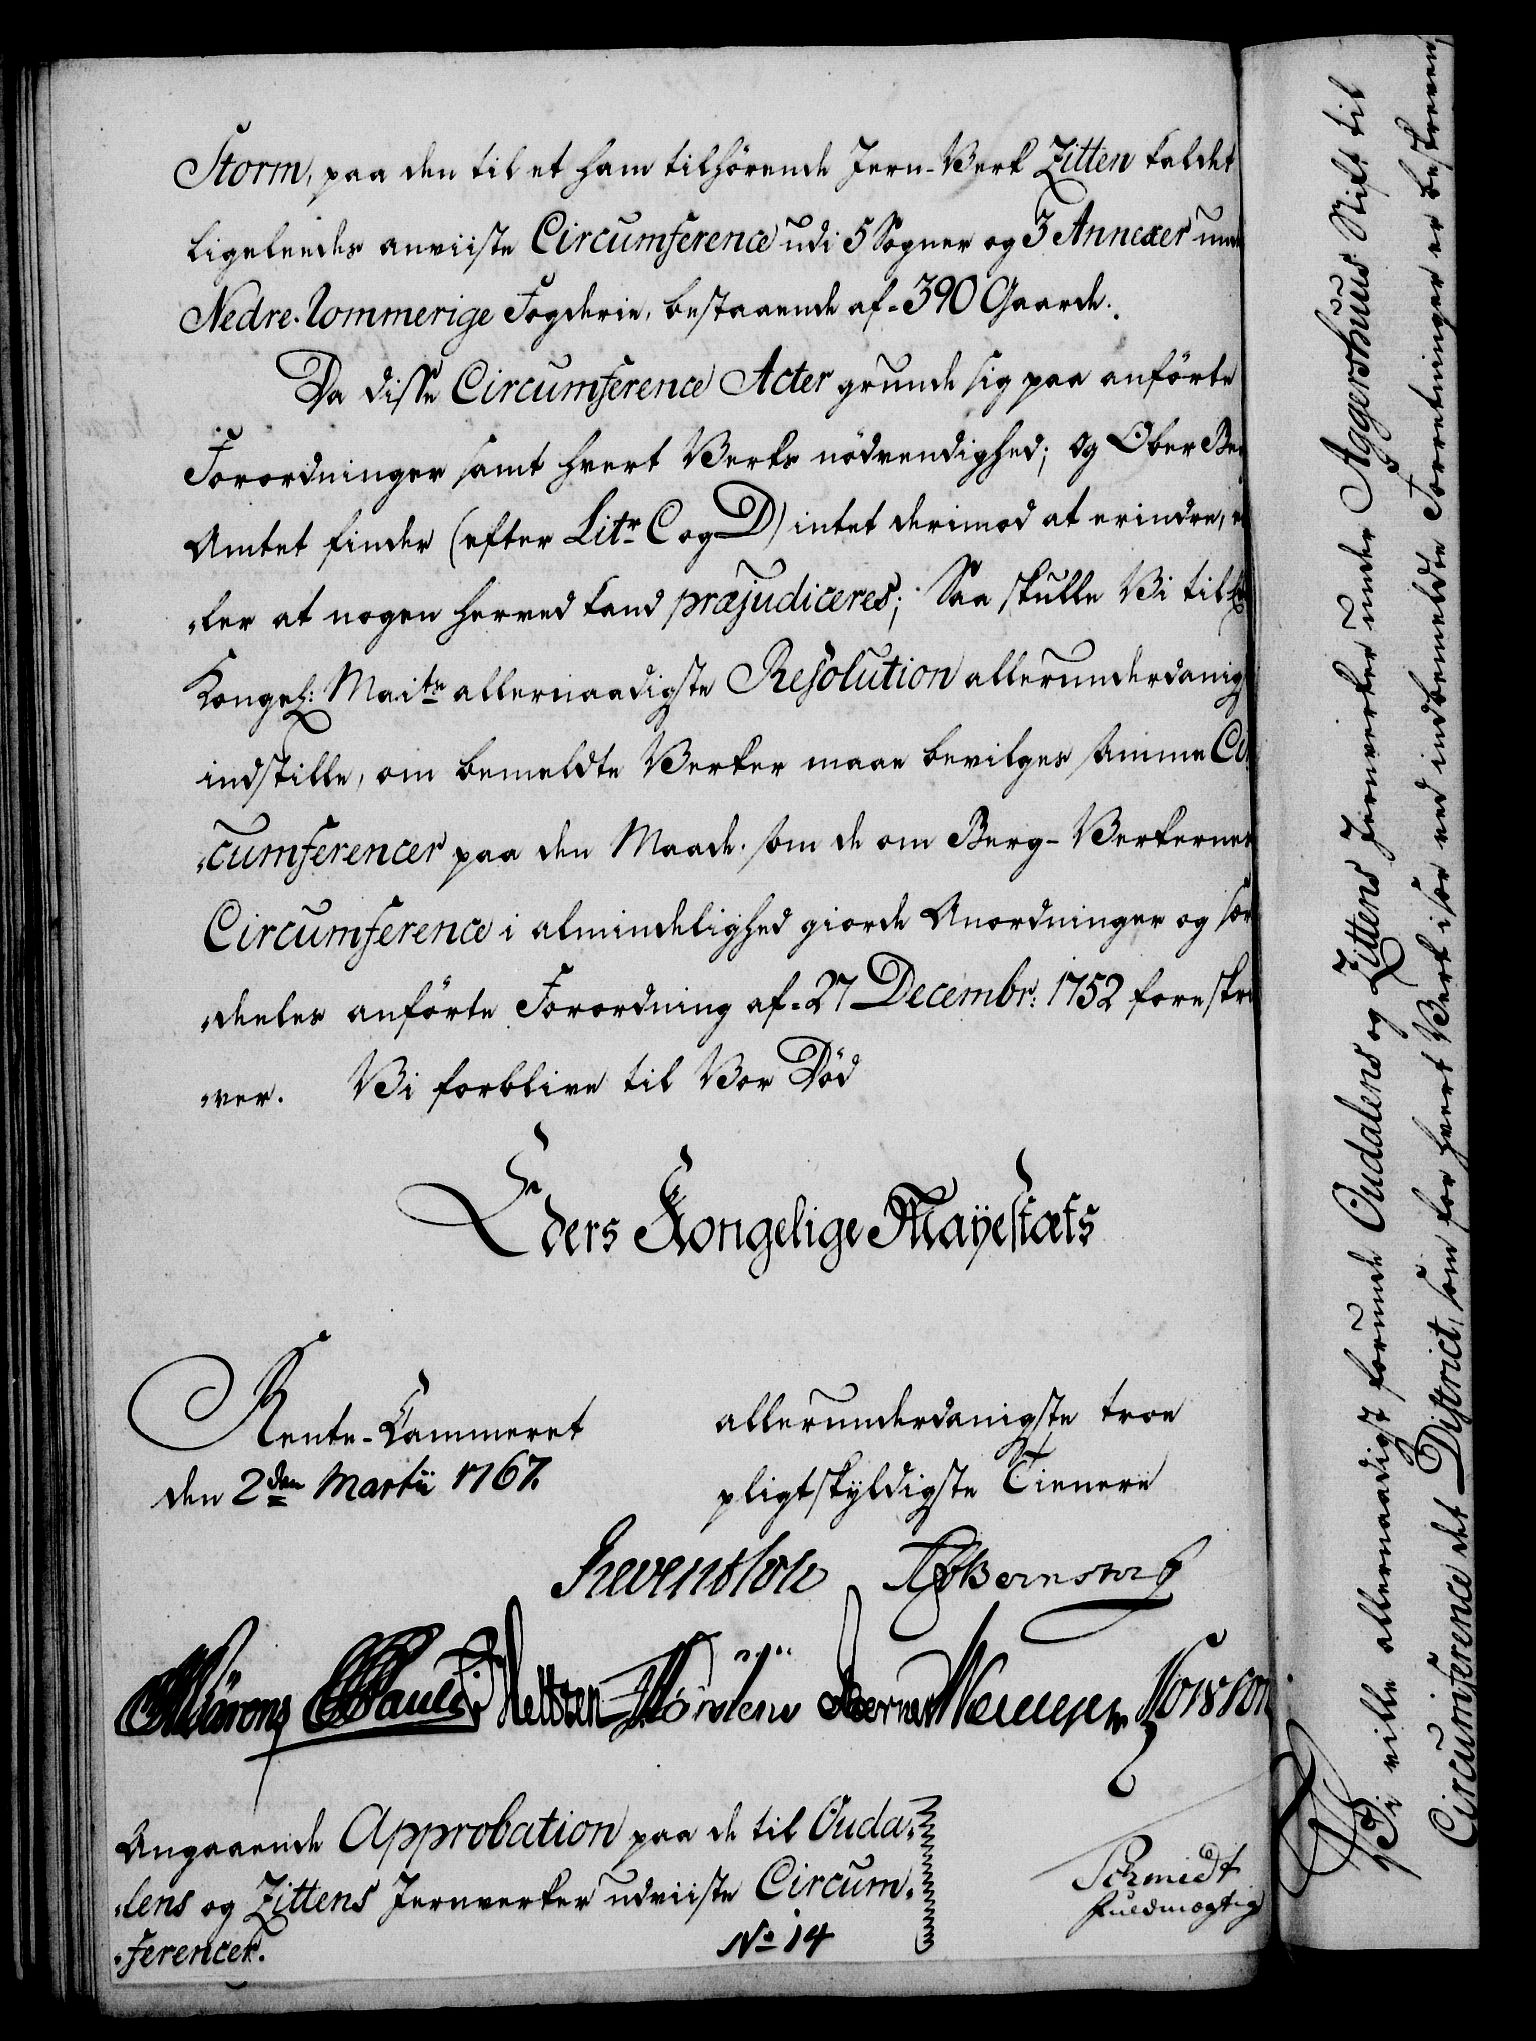 Storm, paa den til et ham tilhörende Jern-Verk Zitten kaldet
ligeleedes anviiste Circumference udi 5 Sogner og 3 Annexer un
Nedre-Rommerige Fogderie, bestaaende af 390 Gaarde.
Da disse Circumference Acter grunde sig paa anförte
Forordninger samt hvert Verks nödvendighed; og Ober Be
Amtet finder (efter Litr C og D) intet derimod at erindre,
„ker at nogen herved kand præjudiceres; Saa skulle Vi til
Kongel: Maitts allernaadigste Resolution allerunderdanig
indstille, om bemeldte Verker maae bevilges samme Cir
„cumferencer paa den Maade. som de om Berg-Verkernes
Circumference i almindelighed giorde Anordninger og sær
„deeles anförte Forordning af 27 Decembr: 1752 foreskri
„ver. Vi forblive til Vor Död
Eders Kongelige Mayestæts
Rente-Cammeret
den 2den Martii 1767.
allerunderdanigste troe
pligtskyldigste Tienere
Reventlow Bernstorff
Angaaende Approbation paa de til Ouda„
„lens og Zittens Jernverker udviiste Circum„
„ferencer.
No 14
Schmidt
fuldmægtig
Vi ville allernaadigst forunde Oudalens og Zittens Jernverker under Aggershuus Stift til
Circumference det District, som for hvert Verk især ved indbemeldte Forretninger er beskreven,